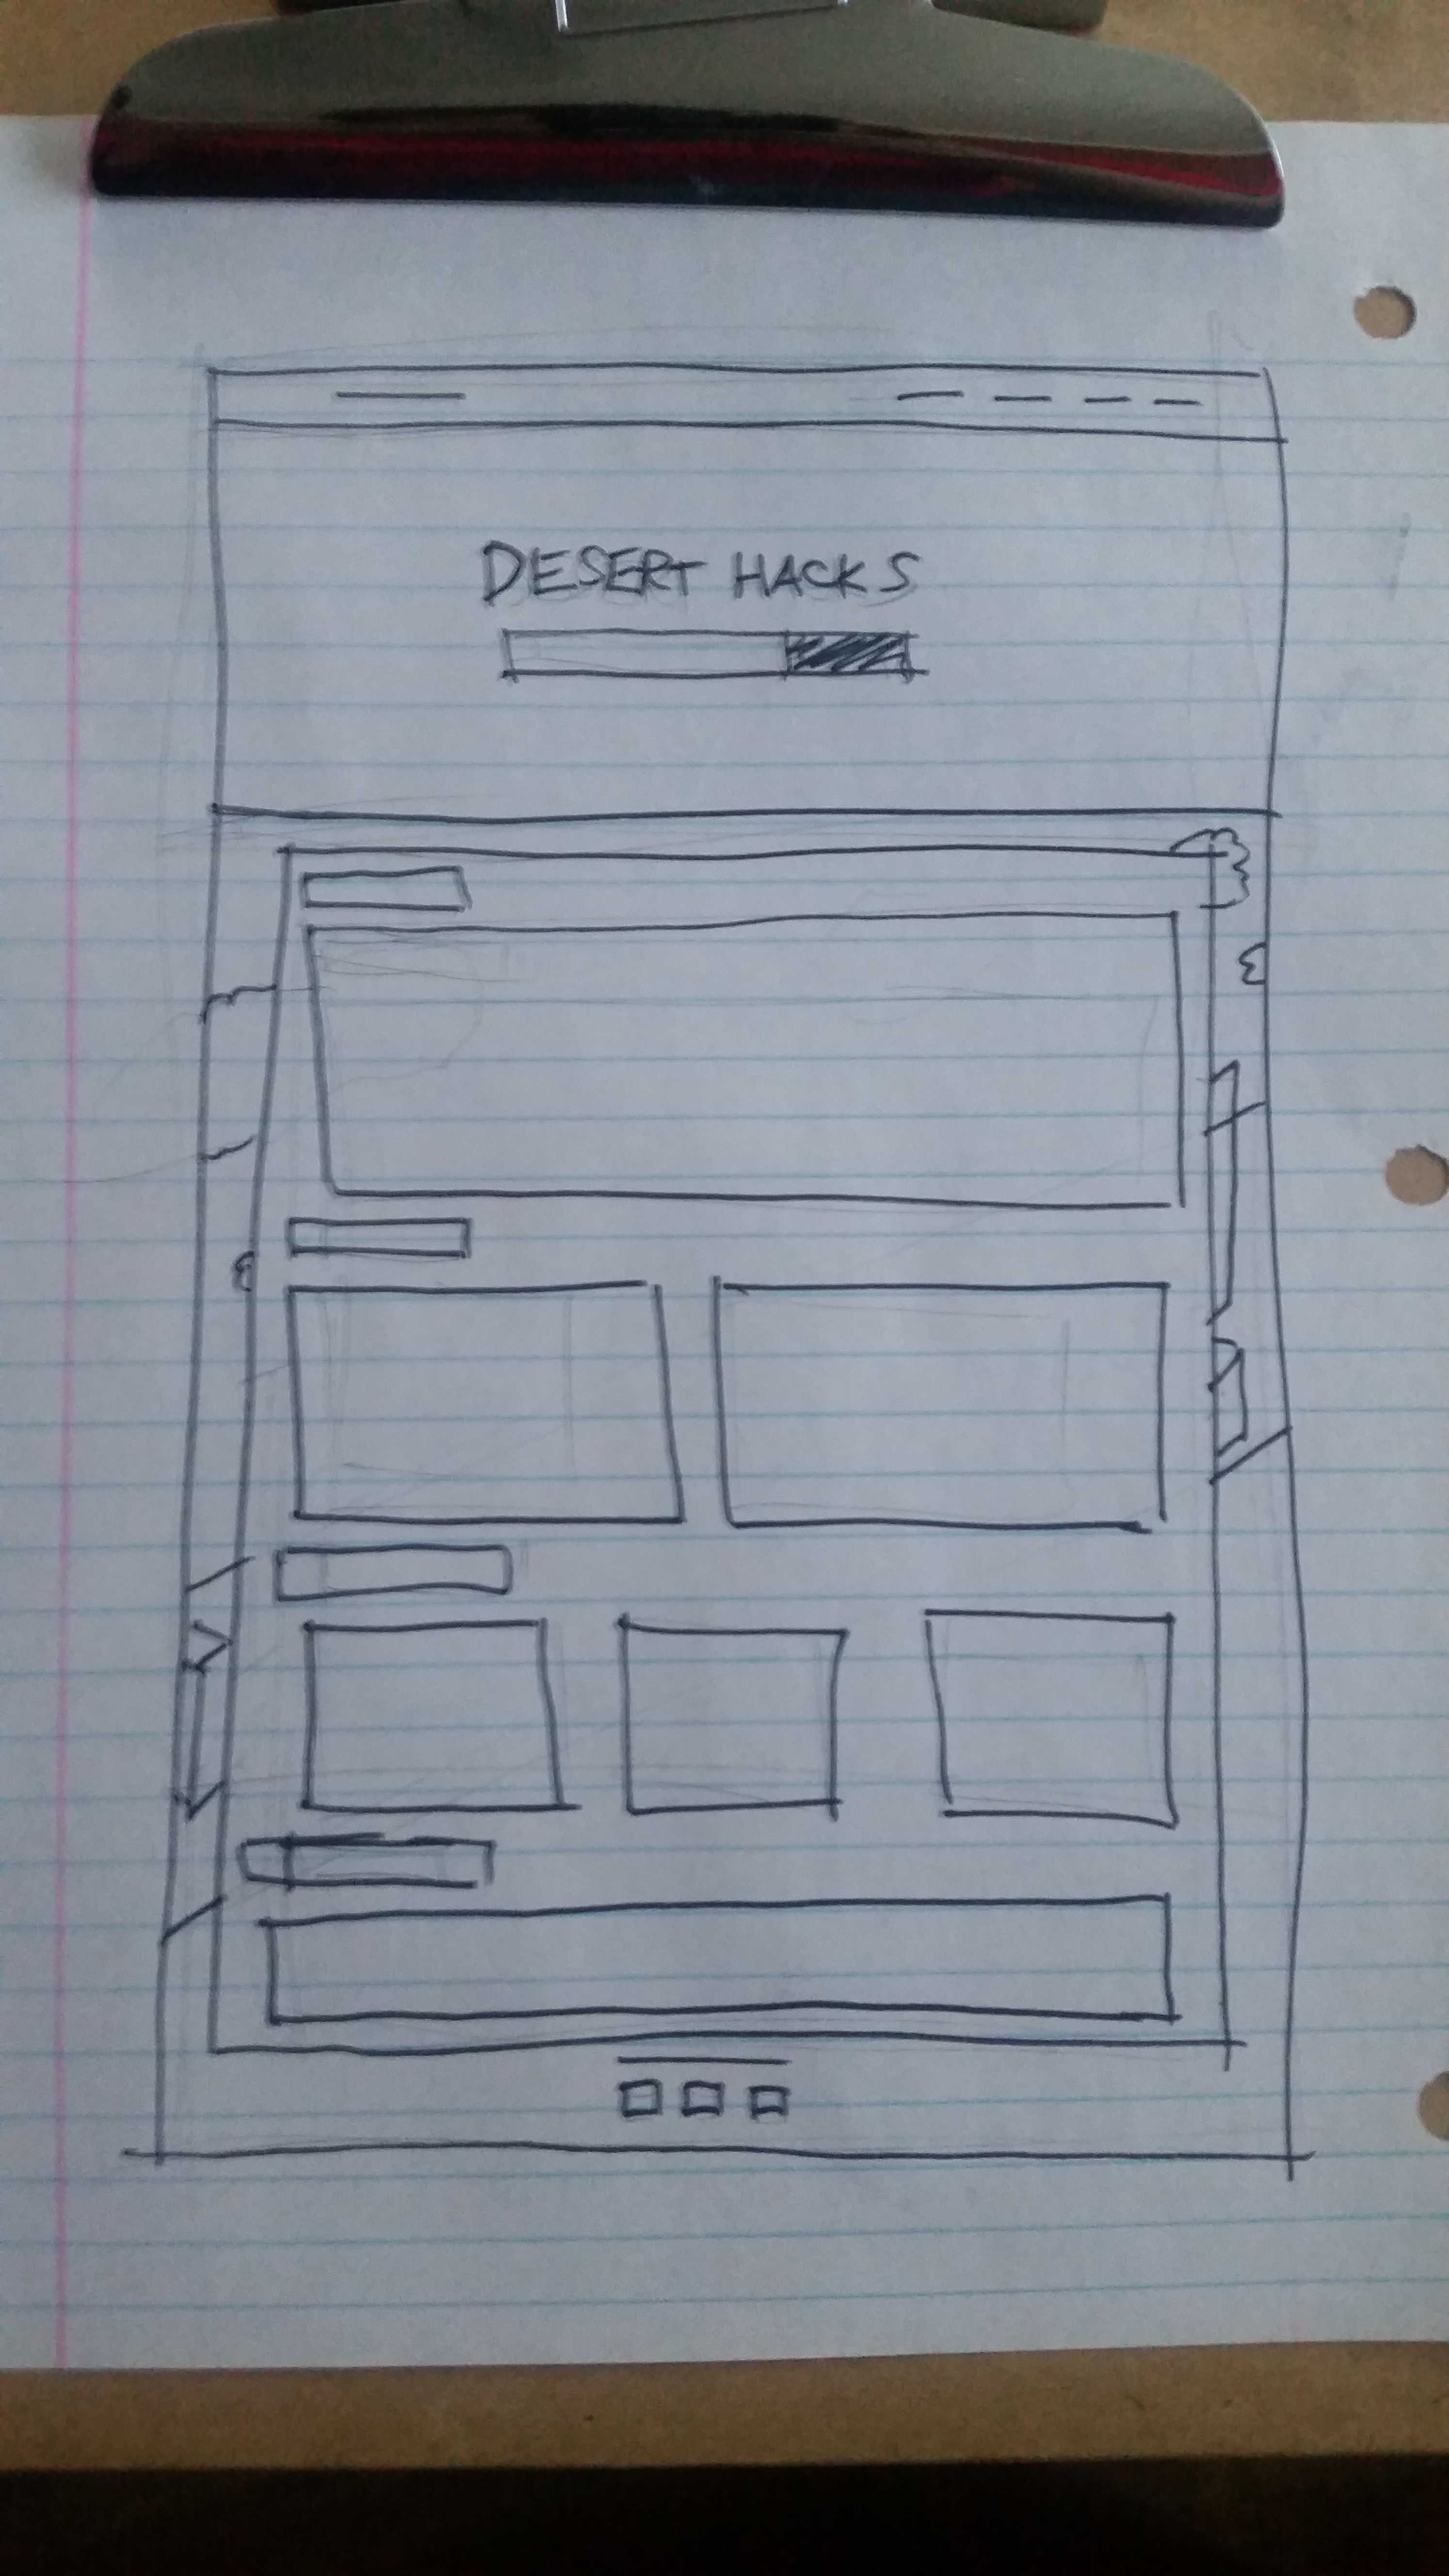 DESERT HACKS